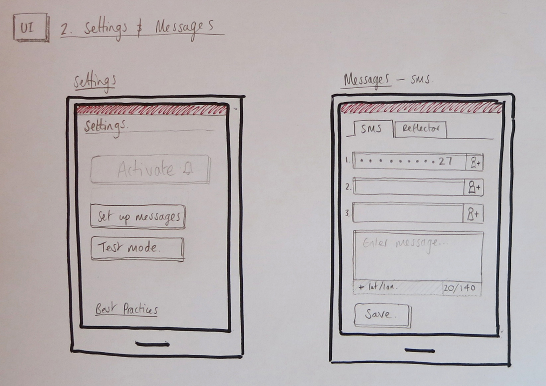 UI
2. Settings & Messages
Settings
Settings.
Activate
Set up messages
Test mode.
Best Practices
Messages - SMS
SMS
Reflector
1. ......... 27
2.
3.
Enter message...
+ lat/lon.
20/140
Save